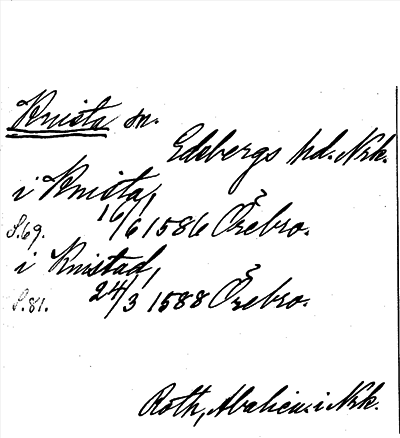 Knista sn.
Edsbergs hd. Nrk.
i Knista,
S.69. 16/6 1586 Örebro.
i Knistad,
S.81. 24/3 1588 Örebro.
Roth, i Nrk.